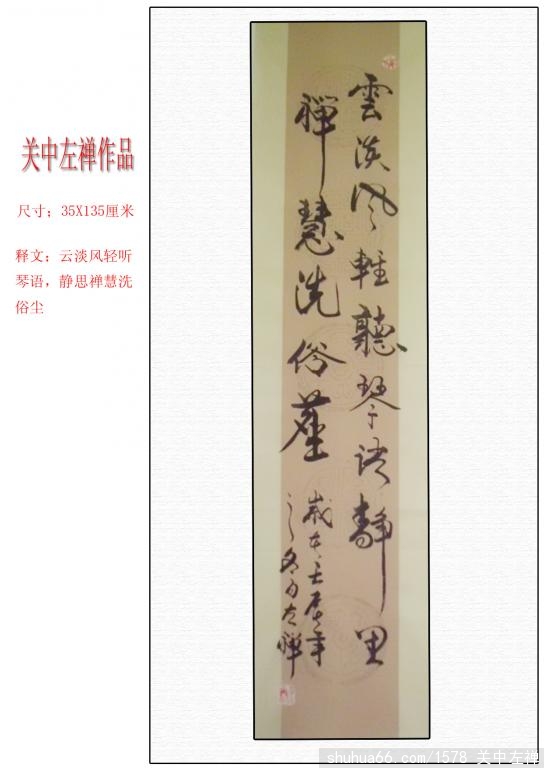 关中左禅作品
尺寸；35X135厘米
释文；云淡风轻听
琴语，静思禅慧洗
俗尘
雲淡风輕聽琴语靜里
禅慧洗俗塵
歲在壬辰年
之冬月左禅
shuhua66.com/1578 关中左禅